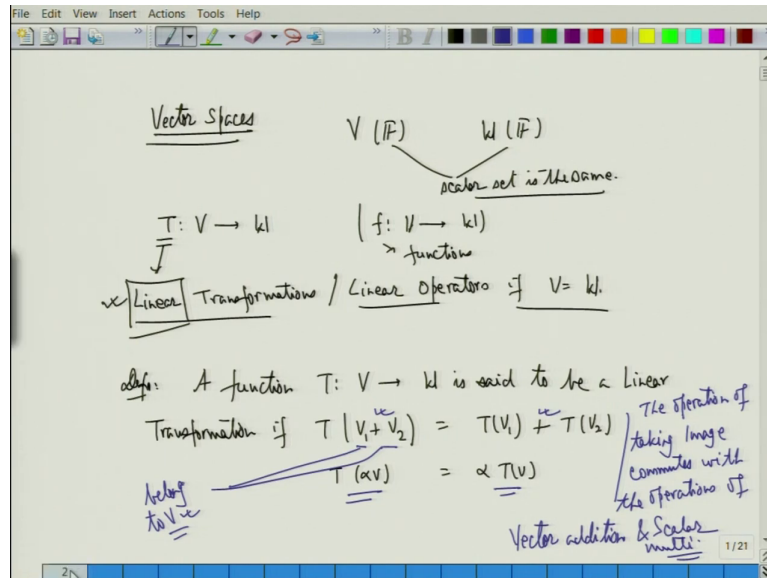 File Edit View Insert Actions Tools Help
Vector Spaces V (F) W (F)
scalar set is the same.
T: V → W (f: V → W)
functions
Linear Transformations / Linear Operators if V = W.
Defn: A function T: V → W is said to be a Linear
Transformation if T (V₁ + V₂) = T(V₁) + T(V₂)
T (αv) = α T(v)
belong
to V
The operation of
taking Image
commutes with
the operations of
Vector addition & Scalar
multi:
1/21
2